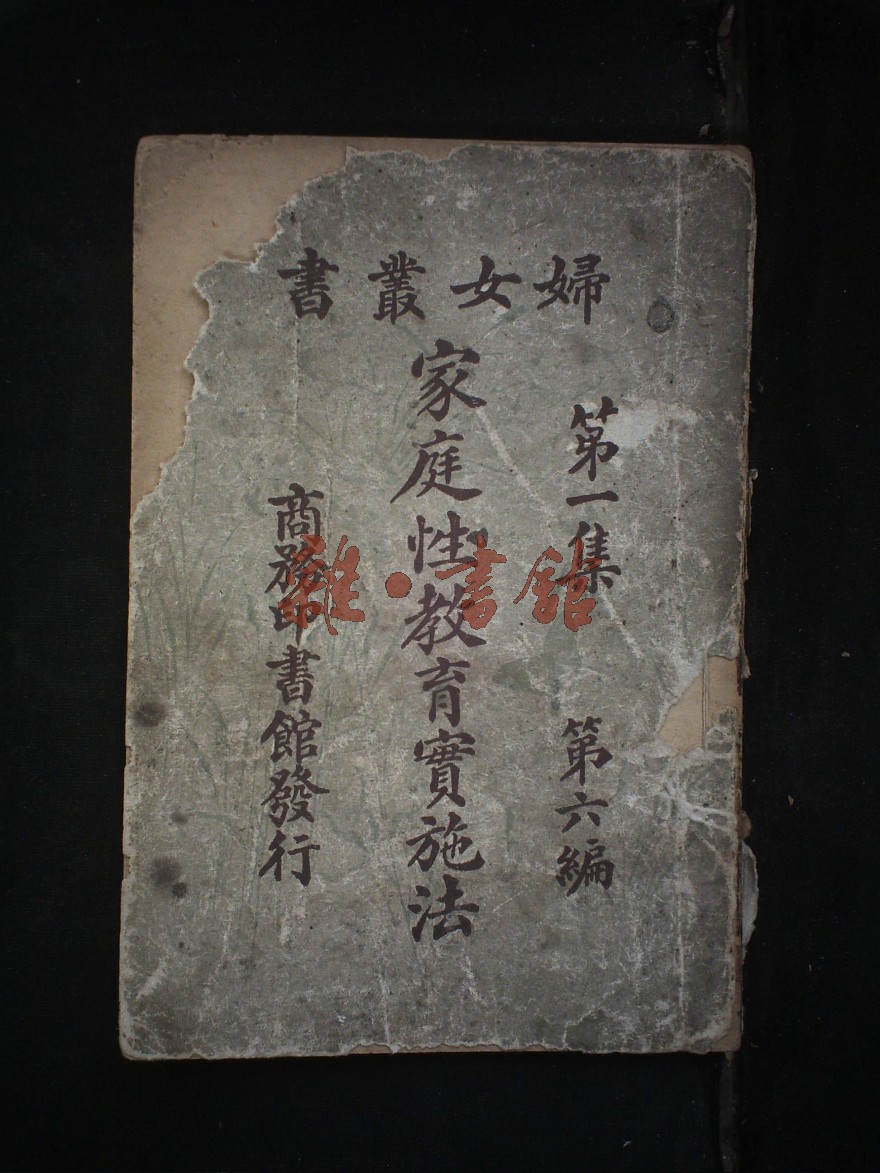 婦女叢書
第一集 第六編
家庭性教育實施法
商務印書館發行
雜·書館